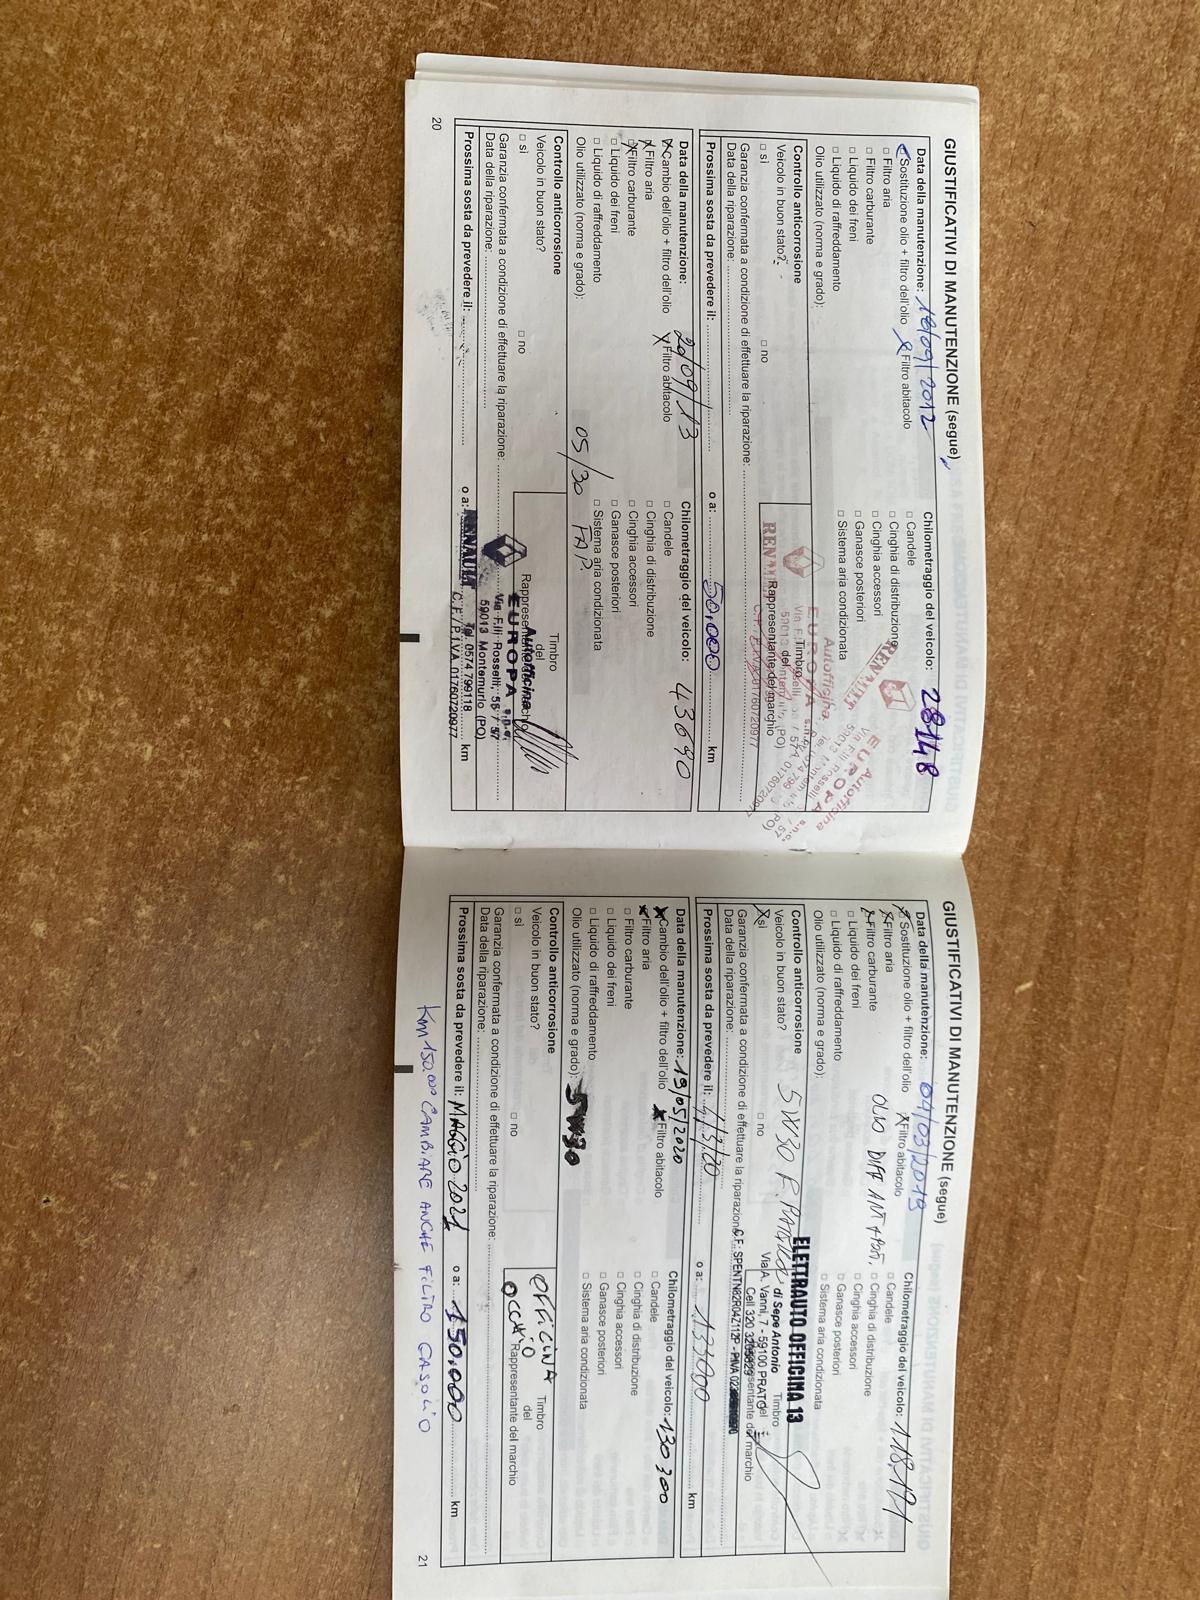 GIUSTIFICATIVI DI MANUTENZIONE (segue)
Data della manutenzione: 18/09/2012 Chilometraggio del veicolo: 28148
Sostituzione olio + filtro dell'olio Filtro abitacolo Candele
Filtro aria Cinghia di distribuzione
Filtro carburante Cinghia accessori
Liquido dei freni Ganasce posteriori
Liquido di raffreddamento Sistema aria condizionata
Olio utilizzato (norma e grado):
RENAULT
Autofficina
EUROPA s.n.c.
Controllo anticorrosione
Veicolo in buon stato?
si no
Timbro
del
Rappresentante del marchio
Autofficina
EUROPA s.n.c.
RENAULT
Garanzia confermata a condizione di effettuare la riparazione:
Data della riparazione:
Prossima sosta da prevedere il: o a: 50.000 km
Data della manutenzione: 20/09/13 Chilometraggio del veicolo: 43690
Cambio dell'olio + filtro dell'olio Filtro abitacolo Candele
Filtro aria Cinghia di distribuzione
Filtro carburante Cinghia accessori
Liquido dei freni Ganasce posteriori
Liquido di raffreddamento Sistema aria condizionata
Olio utilizzato (norma e grado): 05/30 FAP
Controllo anticorrosione
Veicolo in buon stato?
si no
Timbro
del
Rappresentante del marchio
Autofficina
EUROPA s.n.c.
Via F.lli Rosselli, 55 / 57
59013 Montemurlo (PO)
Tel. 0574 799118
C.F./P.IVA 01760720977
RENAULT
Garanzia confermata a condizione di effettuare la riparazione:
Data della riparazione:
Prossima sosta da prevedere il: o a: km
20
GIUSTIFICATIVI DI MANUTENZIONE (segue)
Data della manutenzione: 04/03/2019 Chilometraggio del veicolo: 118171
Sostituzione olio + filtro dell'olio Filtro abitacolo Candele
Filtro aria Cinghia di distribuzione
Filtro carburante OLIO DIFF ANT + POST. Cinghia accessori
Liquido dei freni Ganasce posteriori
Liquido di raffreddamento Sistema aria condizionata
Olio utilizzato (norma e grado): 5W30
Controllo anticorrosione
Veicolo in buon stato?
si no
Timbro
del
Rappresentante del marchio
ELETTRAUTO OFFICINA 13
di Sepe Antonio
Via A. Vanni, 7 - 59100 PRATO
Cell 320
C.F.: SPENTN82R04Z112P - P.IVA
Garanzia confermata a condizione di effettuare la riparazione:
Data della riparazione:
Prossima sosta da prevedere il: 4/3/20 o a: 133000 km
Data della manutenzione: 19/05/2020 Chilometraggio del veicolo: 130300
Cambio dell'olio + filtro dell'olio Filtro abitacolo Candele
Filtro aria Cinghia di distribuzione
Filtro carburante Cinghia accessori
Liquido dei freni Ganasce posteriori
Liquido di raffreddamento Sistema aria condizionata
Olio utilizzato (norma e grado): 5W30
Controllo anticorrosione
Veicolo in buon stato?
si no
OFFICINA
OCCHIO
Timbro
del
Rappresentante del marchio
Garanzia confermata a condizione di effettuare la riparazione:
Data della riparazione:
Prossima sosta da prevedere il: MAGGIO 2021 o a: 150.000 km
Km 150.000 CAMBIARE ANCHE FILTRO GASOLIO
21